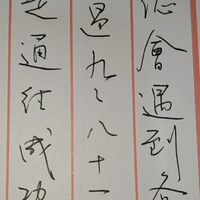 會遇到各
過九〻八十一
通往成功